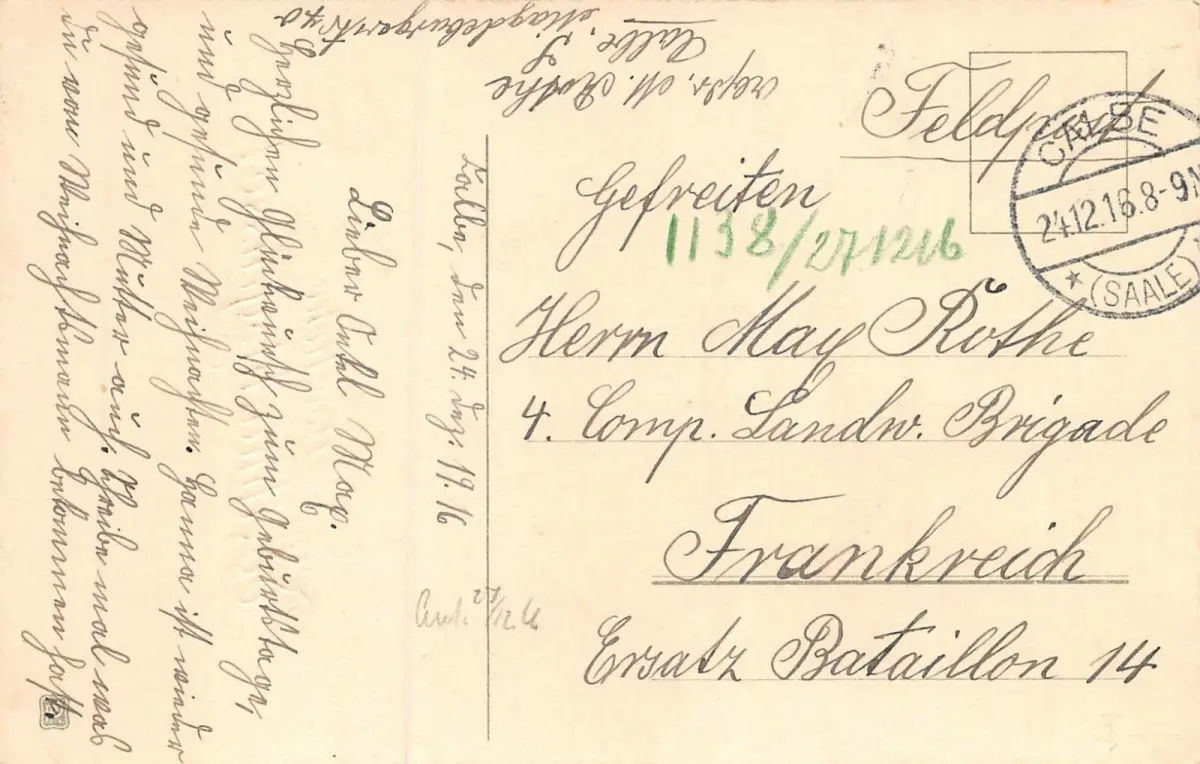 Calbe, den 24. Dez. 19.16
Lieber Onkel Max.
Herzlichen Glückwunsch zum Geburtstage,
und gesunde Weihnachten. Hanna ist wieder
gesund und Mutter auch. Schreibe mal was
du vom Weihnachtsmann bekommen hast.
M. Rothe
Calbe, S
Magdeburgerstr 40
Feldpost
CALBE
24.12.16.8-9N
* (SAALE)
Gefreiten
1138/271216
Herrn Max Rothe
4. Comp. Landw. Brigade
Frankreich
Ersatz Bataillon 14
27/12.16